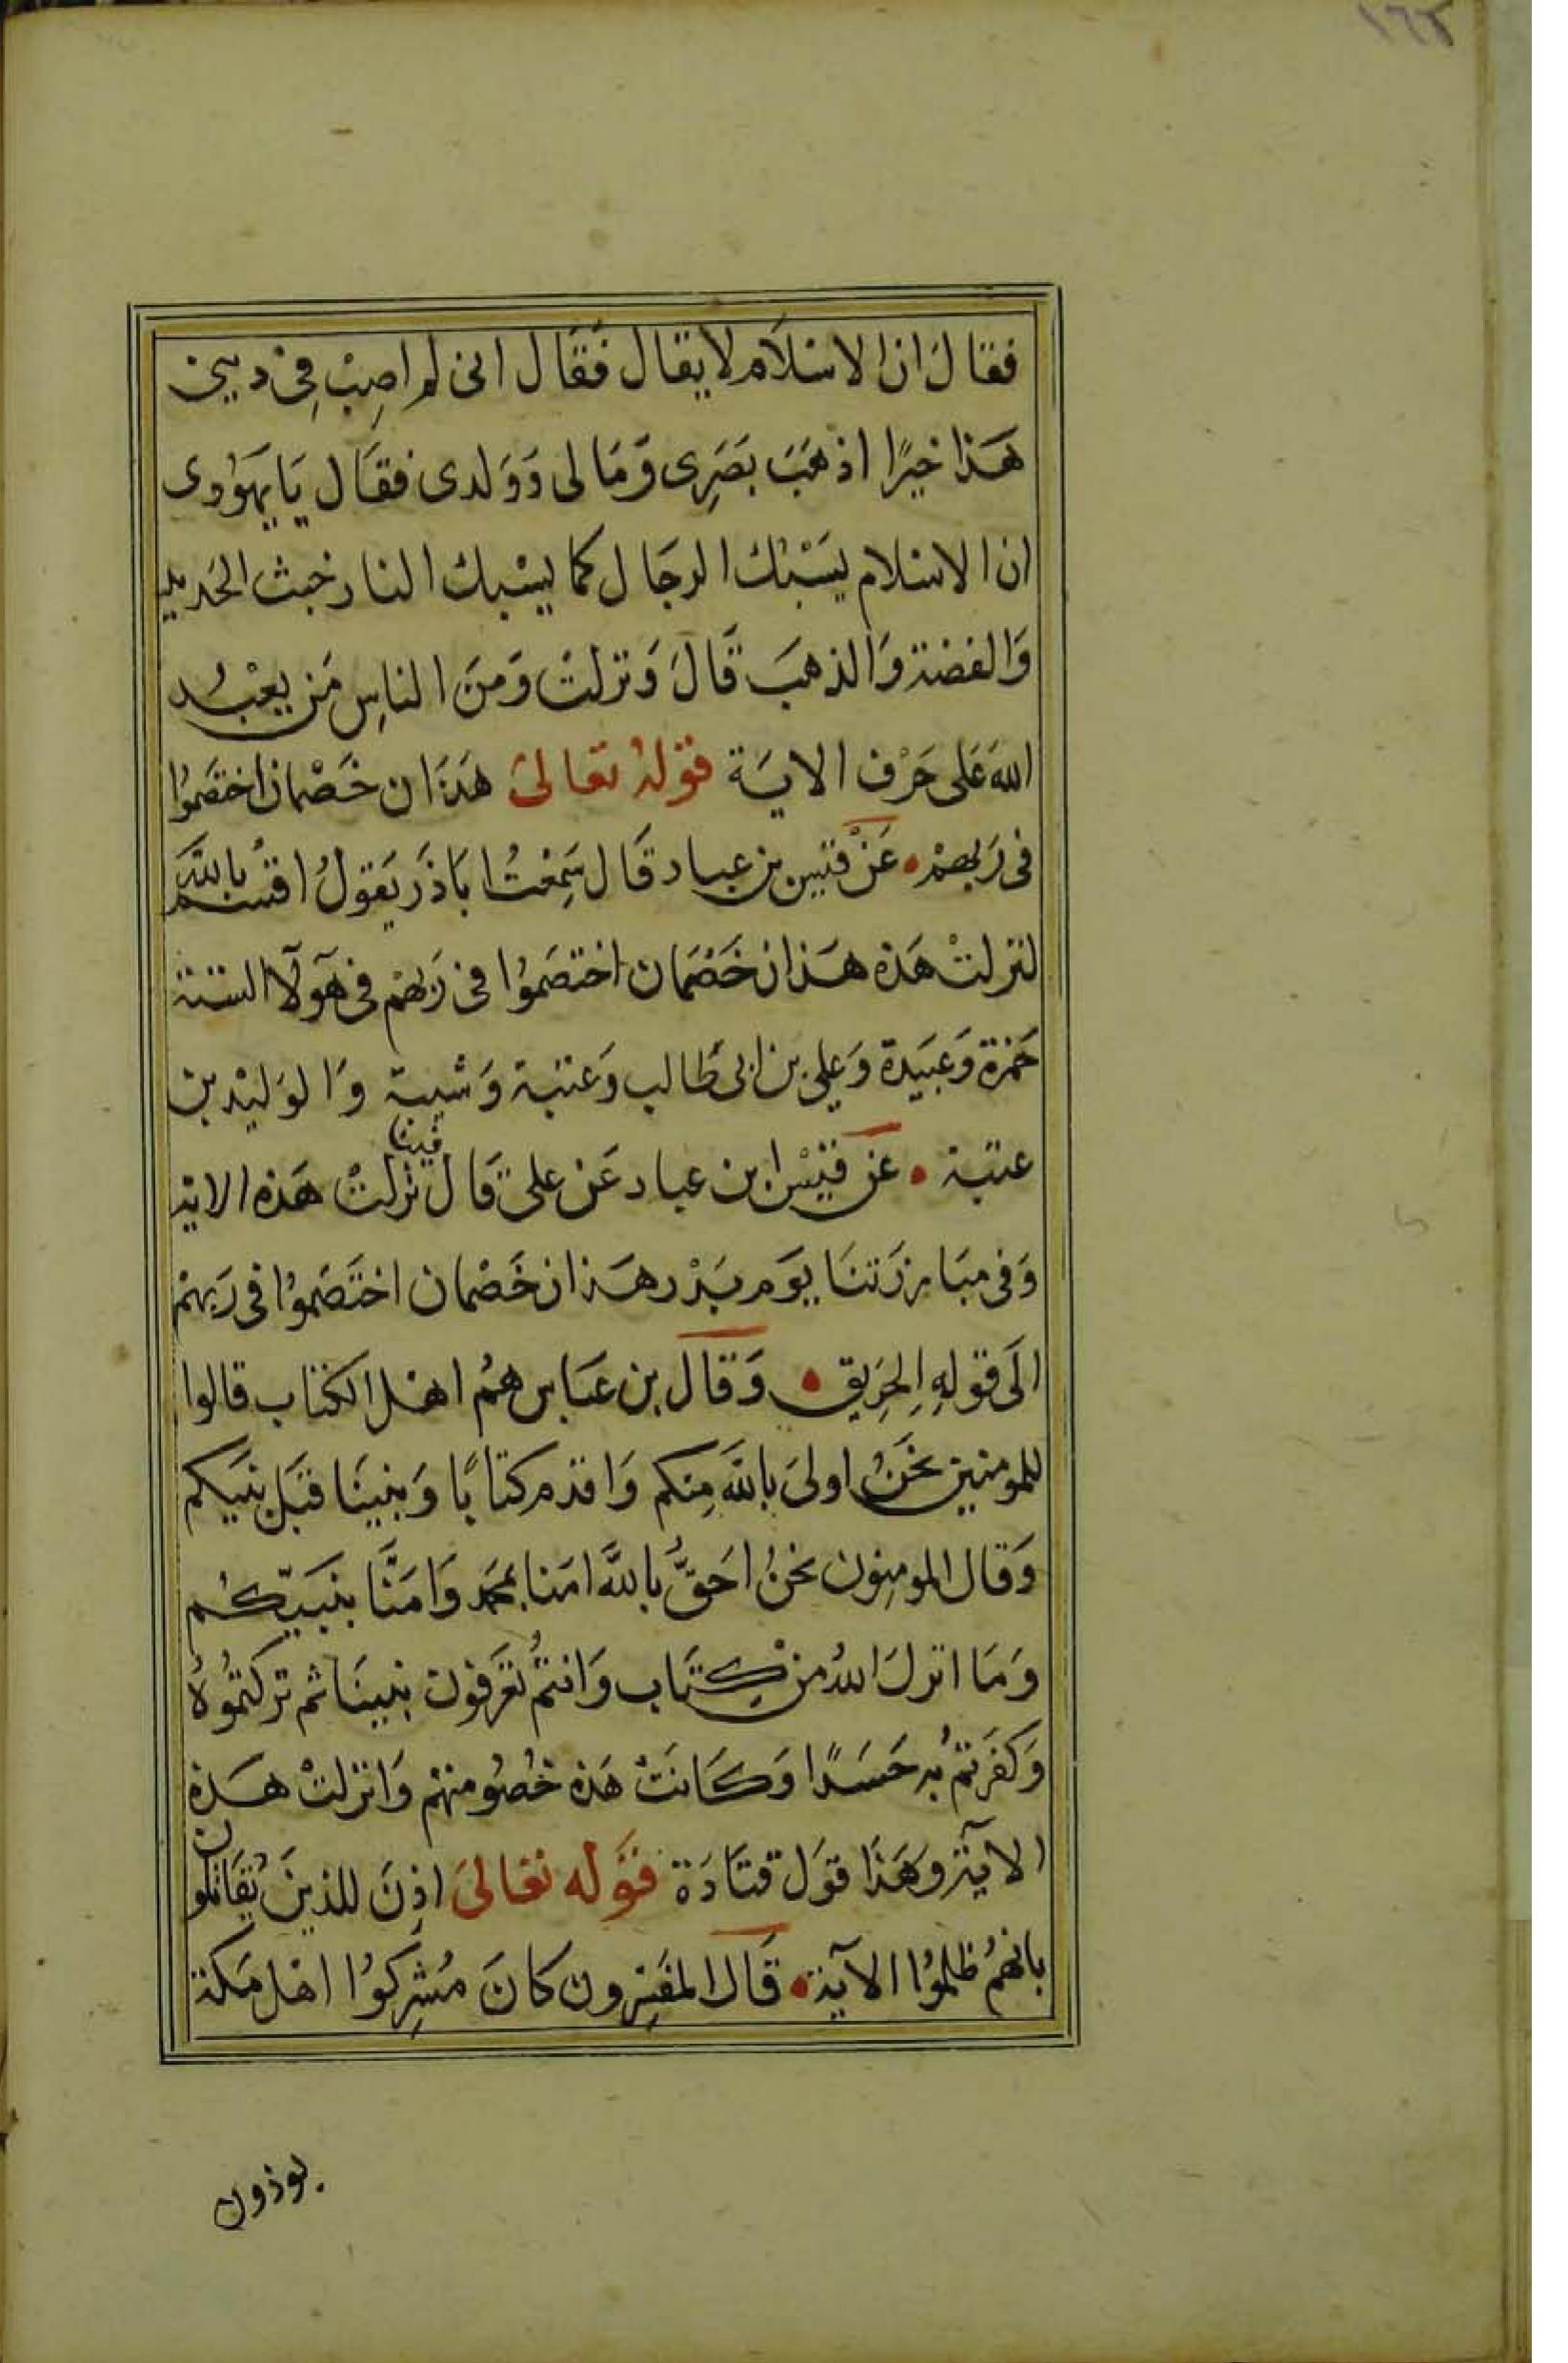 ١٦٢
فقالَ ان الاسْلاَم لا يقال فَقَال انى لم اصِبْ فِى دينى
هَذا خيرًا اذهَبَ بصَرِى وَمَالى وَوَلدى فقَال يَا يَهوُدى
ان الاسْلام يَسْبُك الرجَال كما يسْبك النار خبث الحَديد
وَالفضة وَالذهبَ قَالَ وَنزلتْ وَمنَ الناسِ مَن يعْبُد
اللهَ عَلى حَرْف الايَة قوْلهُ تعَالىَ هَذَان خَصْمان اختصَموُا
فى رَبهمْ • عَنْ قيس بن عباد قَال سَمِعْتُ ابَا ذَر يَقولُ اقسُم بالله
لنزلتْ هَذه هَذان خَصْمَان اختصَموُا فى رَبهمْ فى هَؤلآ الستة
حَمزة وَعبَيدة وَعلي بن ابى طَالب وَعتبَة وَشيبة وَالوَليْد بن
عتبة • عَن قيْس ابن عباد عَن على قَال فينا نزلتْ هَذه الاية
وَفى مبَارزَتنَا يوَم بَدْر هَذان خَصْمان اختَصَموُا فى رَبهمْ
الَى قوْلهِ الحَرِيق • وَقَال بن عبَاس همُ اهْل الكتاب قالوا
للمومنين نحَنُ اولىَ باللهَ مِنكم وَاقدم كتابًا وَنبينَا قبَل نبيَكم
وَقال المومِنون نحنُ احَقُّ باللهَ امَنا بمحَمد وَامَنَّا بنبَيّكُم
وَمَا انزلَ اللهُ منْ كِتَاب وَانتمُ تعَرفون نبينَا ثم تركتموُهُ
وَكفَرتمُ به حَسَدًا وَكَانَتْ هَذه خُصُومتهمْ وَانزلتْ هَذه
الآية وهَذَا قوَل قتَادَة قوَله تعَالىَ اذِنَ للذينَ يُقَاتلون
بانهمُ ظلموُا الآية • قَال المفَسِرون كانَ مُشرِكوُا اهْل مَكة
يوذون